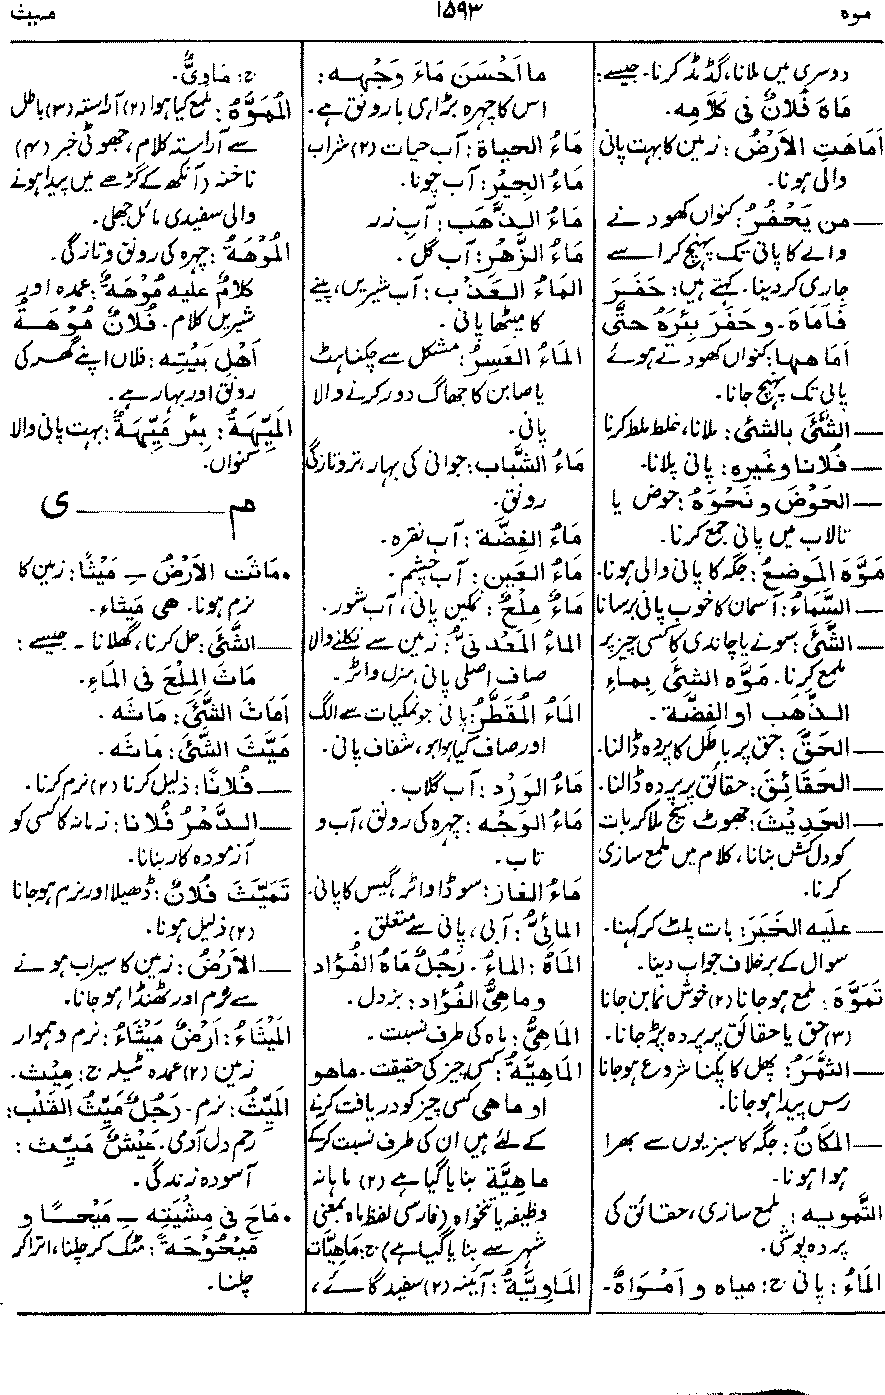 موہ
۱۵۹۳
میث
دوسری میں ملانا، گڈمڈ کرنا۔ جیسے:
مَاهَ فُلَانٌ فی کَلَامِه.
أَمَاهَتِ الأَرْضُ: زمین کا بہت پانی
والی ہونا۔
— من یَحْفُرُ: کنواں کھودنے
والے کا پانی تک پہنچ کر اسے
جاری کردینا۔ کہتے ہیں: حَفَرَ
فَأَمَاهَ۔ و حَفَرَ بِئْرَهُ حتّٰی
أَمَاهها: کنواں کھودتے ہوئے
پانی تک پہنچ جانا۔
— الشَّئَ بالشئِ: ملانا، خلط ملط کرنا
— فُلَانا وغیره: پانی پلانا۔
— الحَوْضَ و نَحْوَهُ: حوض یا
تالاب میں پانی جمع کرنا۔
مَوَّهَ المَوضِعُ: جگہ کا پانی والی ہونا۔
— السَّمَاءُ: آسمان کا خوب پانی برسانا
— الشَّئَ: سونے یا چاندی کا کسی چیز پر
ملمع کرنا۔ مَوَّه الشئَ بِماءِ
الذَّهب او الفِضَّة۔
— الحَقَّ: حق پر باطل کا پردہ ڈالنا۔
— الحَقَائِقَ: حقائق پر پردہ ڈالنا۔
— الحَدِیْثَ: جھوٹ سچ ملا کر بات
کو دل کش بنانا، کلام میں ملمع سازی
کرنا۔
— علیه الخَبَرَ: بات پلٹ کر کہنا۔
سوال کے برخلاف جواب دینا۔
تَمَوَّهَ: ملمع ہوجانا (۲) خوش نما بن جانا
(۳) حق یا حقائق پر پردہ پڑجانا۔
— الثَّمَرُ: پھل کا پکنا شروع ہوجانا
رس پیدا ہوجانا۔
— المَکَانُ: جگہ کا سبزیوں سے بھرا
ہوا ہونا۔
التَّمویه: ملمع سازی، حقائق کی
پردہ پوشی۔
المَاءُ: پانی ج: میاه و أَمْوَاهٌ۔
ما أَحْسَنَ مَاءَ وَجْهِه:
اس کا چہرہ بڑا ہی بارونق ہے۔
مَاءُ الحیاة: آب حیات (۲) شراب
مَاءُ الجِیْرِ: آب چونا۔
مَاءُ الذَّهَبِ: آبِ زر
مَاءُ الزَّهْرِ: آب گل۔
الماءُ العَذْب: آب شیریں، پینے
کا میٹھا پانی۔
المَاءُ العَسِرُ: مشکل سے چکناہٹ
یا صابن کا جھاگ دور کرنے والا
پانی۔
مَاءُ الشَّباب: جوانی کی بہار، تروتازگی
رونق۔
مَاءُ الفِضَّة: آب نقرہ۔
مَاءُ العَین: آبِ چشم۔
مَاءٌ مِلْحٌ: نمکین پانی، آب شور۔
الماءُ المَعْدِنیُّ: زمین سے نکلنے والا
صاف اصلی پانی، منرل واٹر۔
المَاءُ المُقَطَّرُ: پانی جو نمکیات سے الگ
اور صاف کیا ہوا ہو، شفاف پانی۔
مَاءُ الوَرْد: آب گلاب۔
مَاءُ الوَجْه: چہرہ کی رونق، آب و
تاب۔
مَاءُ الغاز: سوڈا واٹر، گیس کا پانی۔
المائیُّ: آبی، پانی سے متعلق۔
المَاهُ: الماءُ۔ رَجُلٌ مَاهُ الفُؤاد
و ماهِیُّ الفُؤَاد: بزدل۔
المَاهِیُّ: ماہ کی طرف نسبت۔
المَاهِیَّةُ: کسی چیز کی حقیقت۔ ماهو
او ماهی کسی چیز کو دریافت کرنے
کے لئے ہیں ان کی طرف نسبت کرکے
ماهِیَّة بنایا گیا ہے (۲) ماہانہ
وظیفہ یا تنخواہ (فارسی لفظ ماہ بمعنی
شہر سے بنایا گیا ہے) ج: مَاهِیَّات
المَاوِیَّةُ: آئینہ (۲) سفید گائے،
ج: مَاوِیُّ۔
المُمَوَّهُ: ملمع کیا ہوا (۲) آراستہ (۳) باطل
سے آراستہ کلام، جھوٹی خبر (۴)
ناخنہ (آنکھ کے گڑھے میں پیدا ہونے
والی سفیدی مائل جھلی۔
المُوْهَةُ: چہرہ کی رونق و تازگی۔
کلامٌ علیه مُوْهَةٌ: عمدہ اور
شیریں کلام۔ فُلَانٌ مُوْهَةُ
أَهْلِ بَیْتِه: فلاں اپنے گھر کی
رونق اور بہار ہے۔
المَیِّهَةُ: بِئر مَیِّهَةٌ: بہت پانی والا
کنواں۔
م ــــــ ی
• مَاثَتِ الأَرْضُ ـِ مَیْثًا: زمین کا
نرم ہونا۔ هی مَیثاء۔
— الشَّئَ: حل کرنا، گھلانا۔ جیسے:
مَاثَ المِلْحَ فی المَاءِ۔
أَمَاثَ الشَّئَ: مَاثَه۔
مَیَّثَ الشَّئَ: مَاثَه۔
— فُلَانًا: ذلیل کرنا (۲) نرم کرنا۔
— الدَّهْرُ فُلَانا: زمانہ کا کسی کو
آزمودہ کار بنانا۔
تَمَیَّثَ فُلَانٌ: ڈھیلا اور نرم ہوجانا
(۲) ذلیل ہونا۔
— الأَرْضُ: زمین کا سیراب ہونے
سے نرم اور ٹھنڈا ہوجانا۔
المَیْثَاءُ: أَرْضٌ مَیْثَاءُ: نرم و ہموار
زمین (۲) عمدہ ٹیلہ ج: مِیْث۔
المَیِّثُ: نرم۔ رَجُلٌ مَیِّثُ القَلْب:
رحم دل آدمی۔ عَیْشٌ مَیِّث:
آسودہ زندگی۔
• مَاحَ فی مِشْیَتِه ـِ مَیْحًا و
مَیْحُوْحَةً: مٹک کر چلنا، اترا کر
چلنا۔